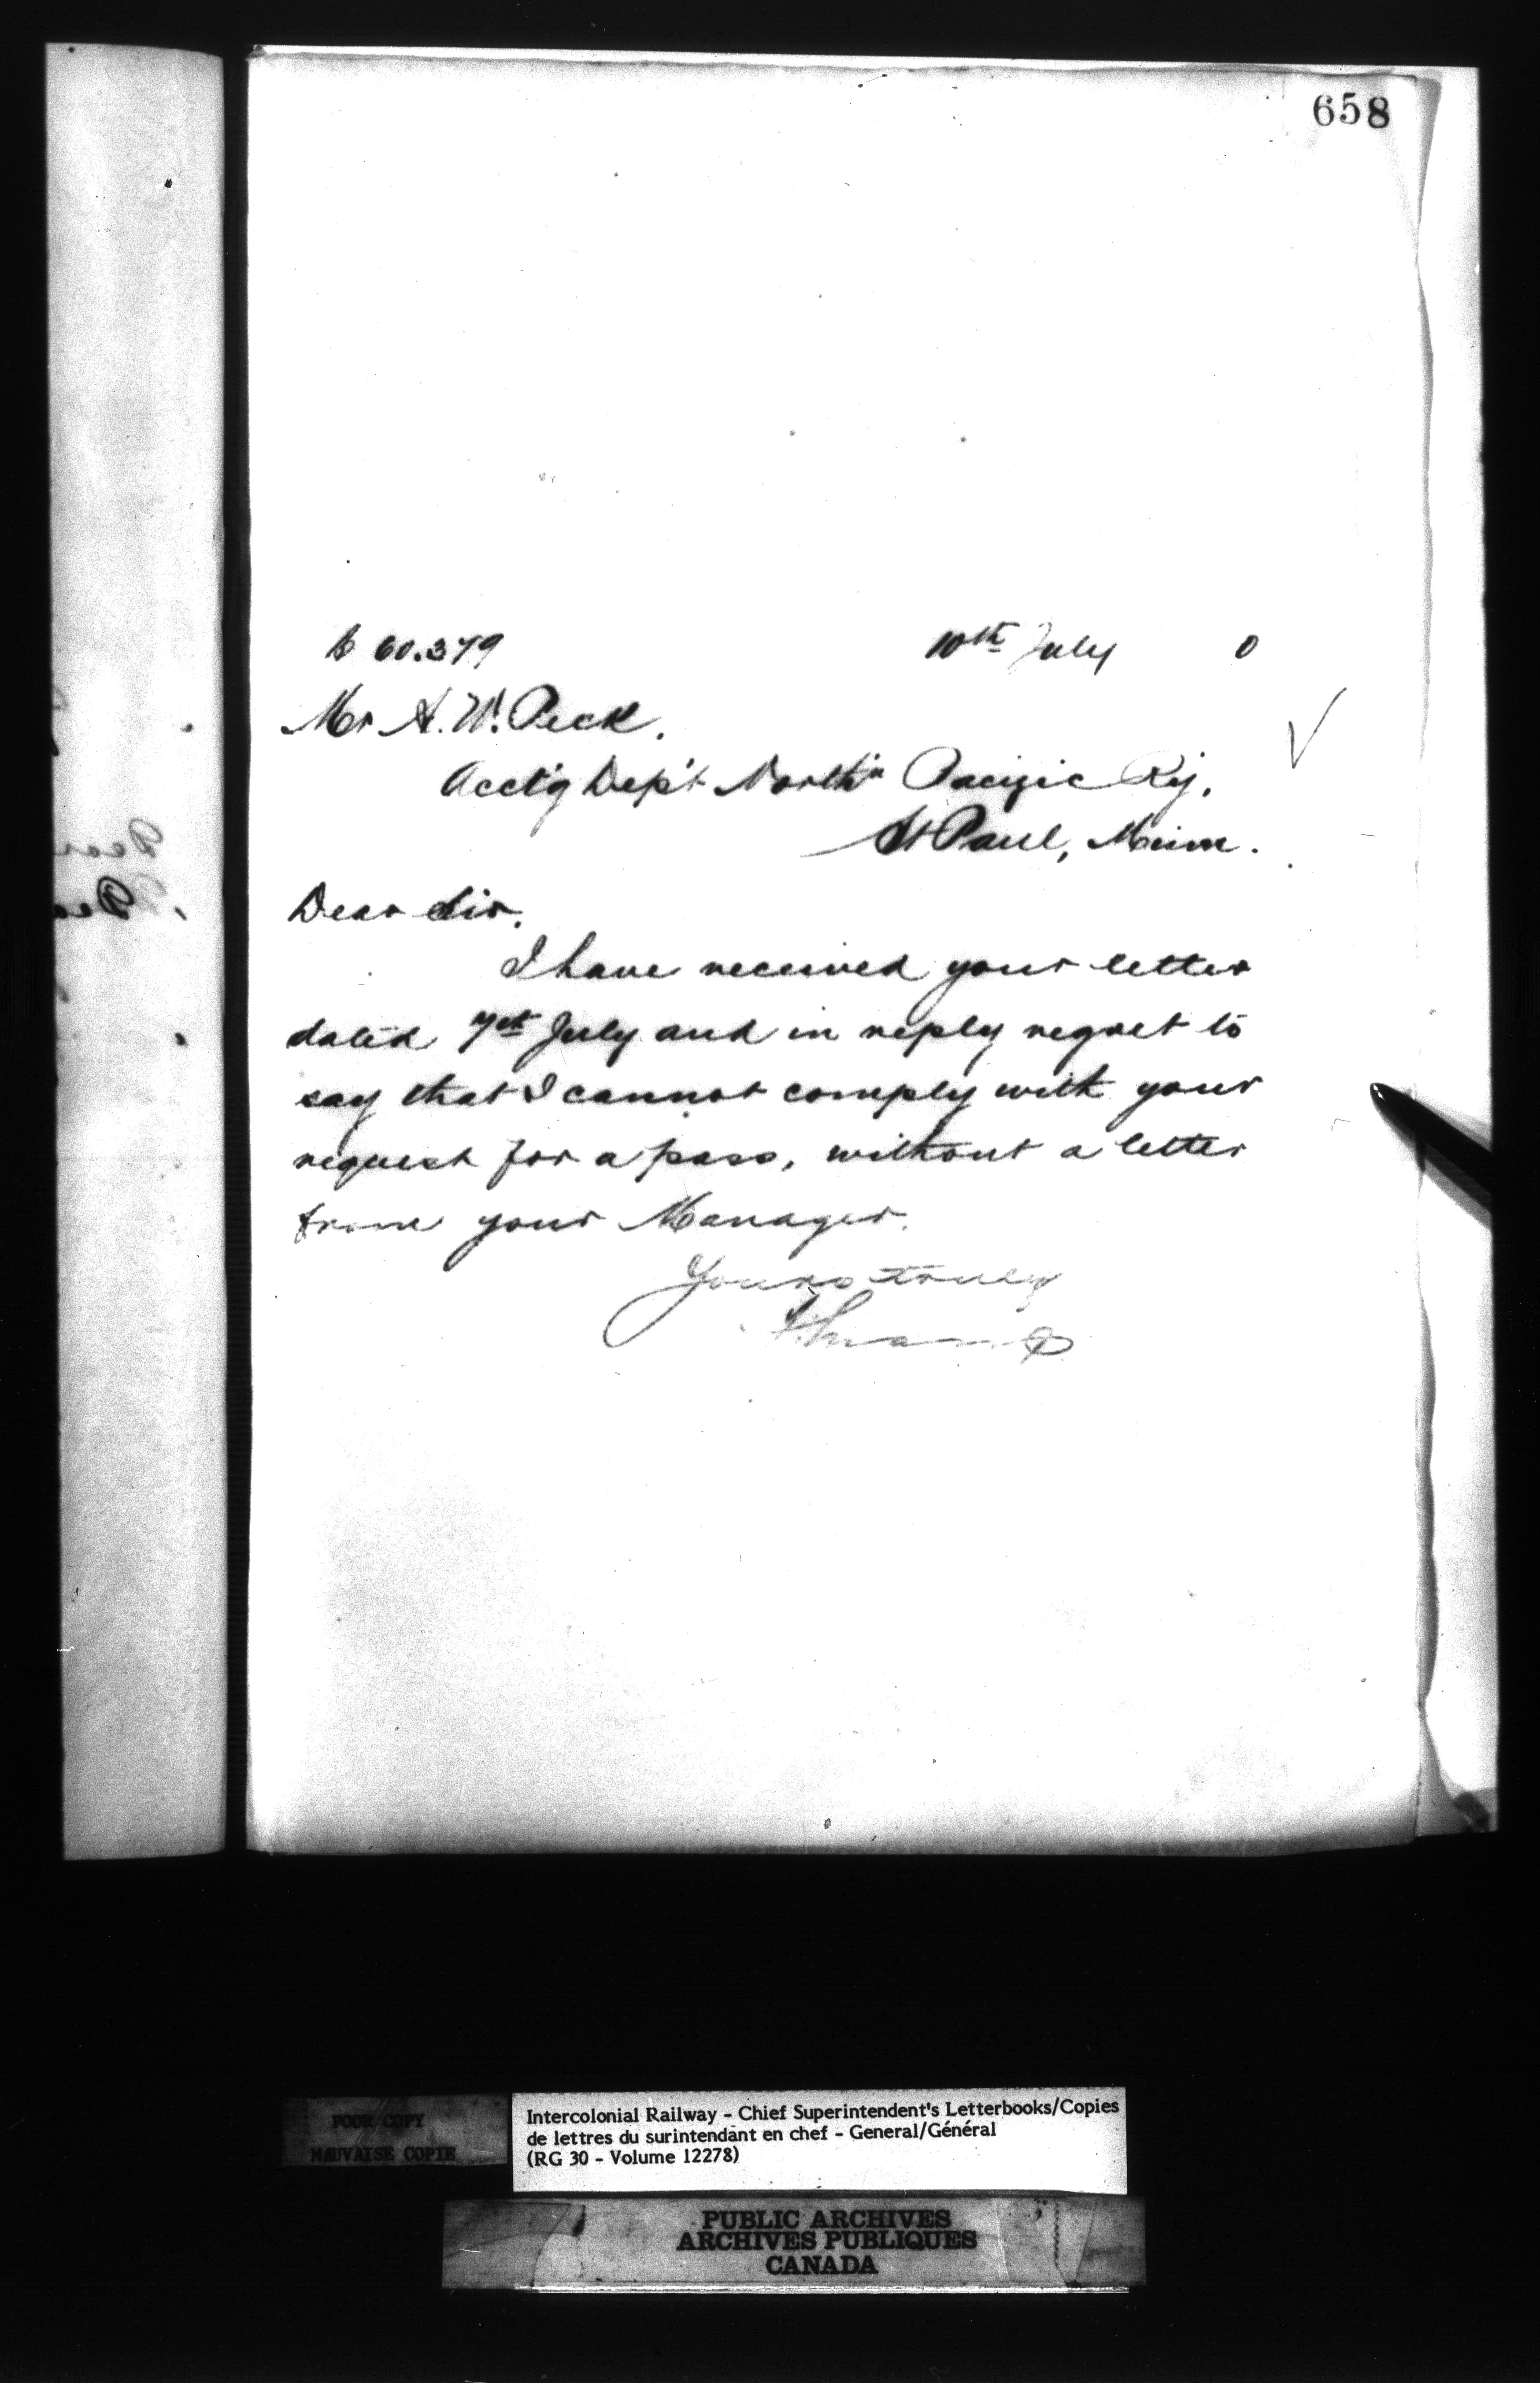 658
60.379 10th July 0
Mr A. W. Peck.
Acct'g Dep't North'n Pacific Ry.
St Paul, Minn.
Dear Sir,
I have received your letter
dated 7th July and in reply regret to
say that I cannot comply with your
request for a pass, without a letter
from your Manager.
Yours truly
POOR COPY
MAUVAISE COPIE
Intercolonial Railway - Chief Superintendent's Letterbooks/Copies
de lettres du surintendant en chef - General/Général
(RG 30 - Volume 12278)
PUBLIC ARCHIVES
ARCHIVES PUBLIQUES
CANADA